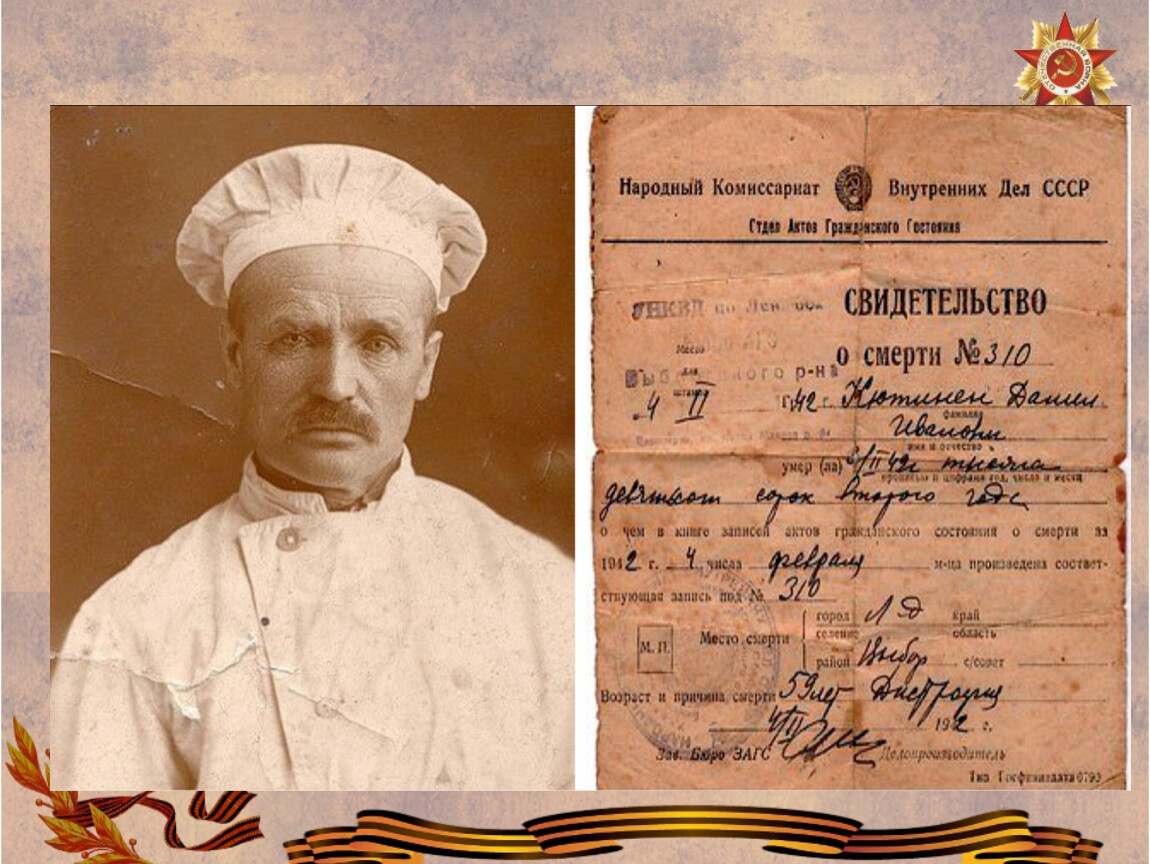 ОТЕЧЕСТВЕННАЯ ВОЙНА
Народный Комиссариат Внутренних Дел СССР
Отдел Актов Гражданского Состояния
УНКВД по Лен. обл.
СВИДЕТЕЛЬСТВО
о смерти № 310
Место
для
штампа
р-на
4 II 42 г. Кютинен Данил
фамилия
Иванович
имя и отчество
умер (ла) 4/II 42г тысяча
прописью и цифрами год, число и месяц
девятьсот сорок второго года
о чем в книге записей актов гражданского состояния о смерти за
1942 г. 4 числа февраля м-ца произведена соответ-
ствующая запись под № 310
город Л-д край
Место смерти селение область
М. П.
район Выбор с/совет
Возраст и причина смерти 59 лет Дистрофия
4/II 1942 г.
Зав. Бюро ЗАГС Делопроизводитель
Тип Госфиниздата 6793